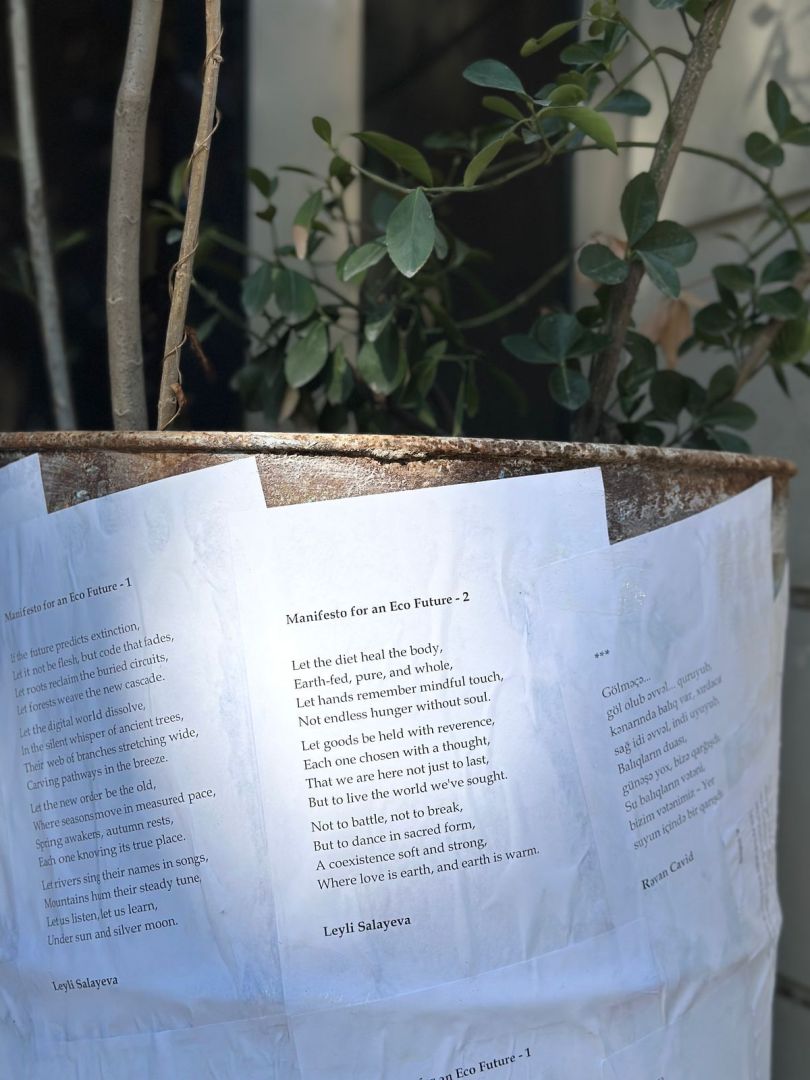 Manifesto for an Eco Future - 1
If the future predicts extinction,
Let it not be flesh, but code that fades,
Let roots reclaim the buried circuits,
Let forests weave the new cascade.
Let the digital world dissolve,
In the silent whisper of ancient trees,
Their web of branches stretching wide,
Carving pathways in the breeze.
Let the new order be the old,
Where seasons move in measured pace,
Spring awakens, autumn rests,
Each one knowing its true place.
Let rivers sing their names in songs,
Mountains hum their steady tune,
Let us listen, let us learn,
Under sun and silver moon.
Leyli Salayeva
Manifesto for an Eco Future - 2
Let the diet heal the body,
Earth-fed, pure, and whole,
Let hands remember mindful touch,
Not endless hunger without soul.
Let goods be held with reverence,
Each one chosen with a thought,
That we are here not just to last,
But to live the world we've sought.
Not to battle, not to break,
But to dance in sacred form,
A coexistence soft and strong,
Where love is earth, and earth is warm.
Leyli Salayeva
***
Gölməçə...
göl olub əvvəl... quruyub,
kənarında balıq var, xırdaca
sağ idi əvvəl, indi uyuyub.
Balıqların duası,
günəşə yox, bizə qarğışdı
Su balıqların vətəni,
bizim vətənimiz – Yer
suyun içində bir qarışdı
Rəvan Cavid
an Eco Future - 1